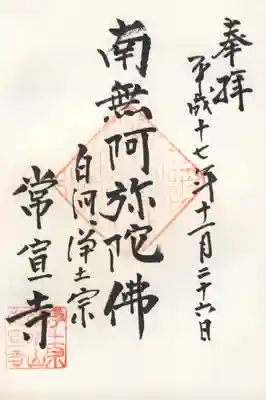 奉拝
平成十七年十一月二十六日
南無阿弥陀佛
白河浄土宗
常宣寺